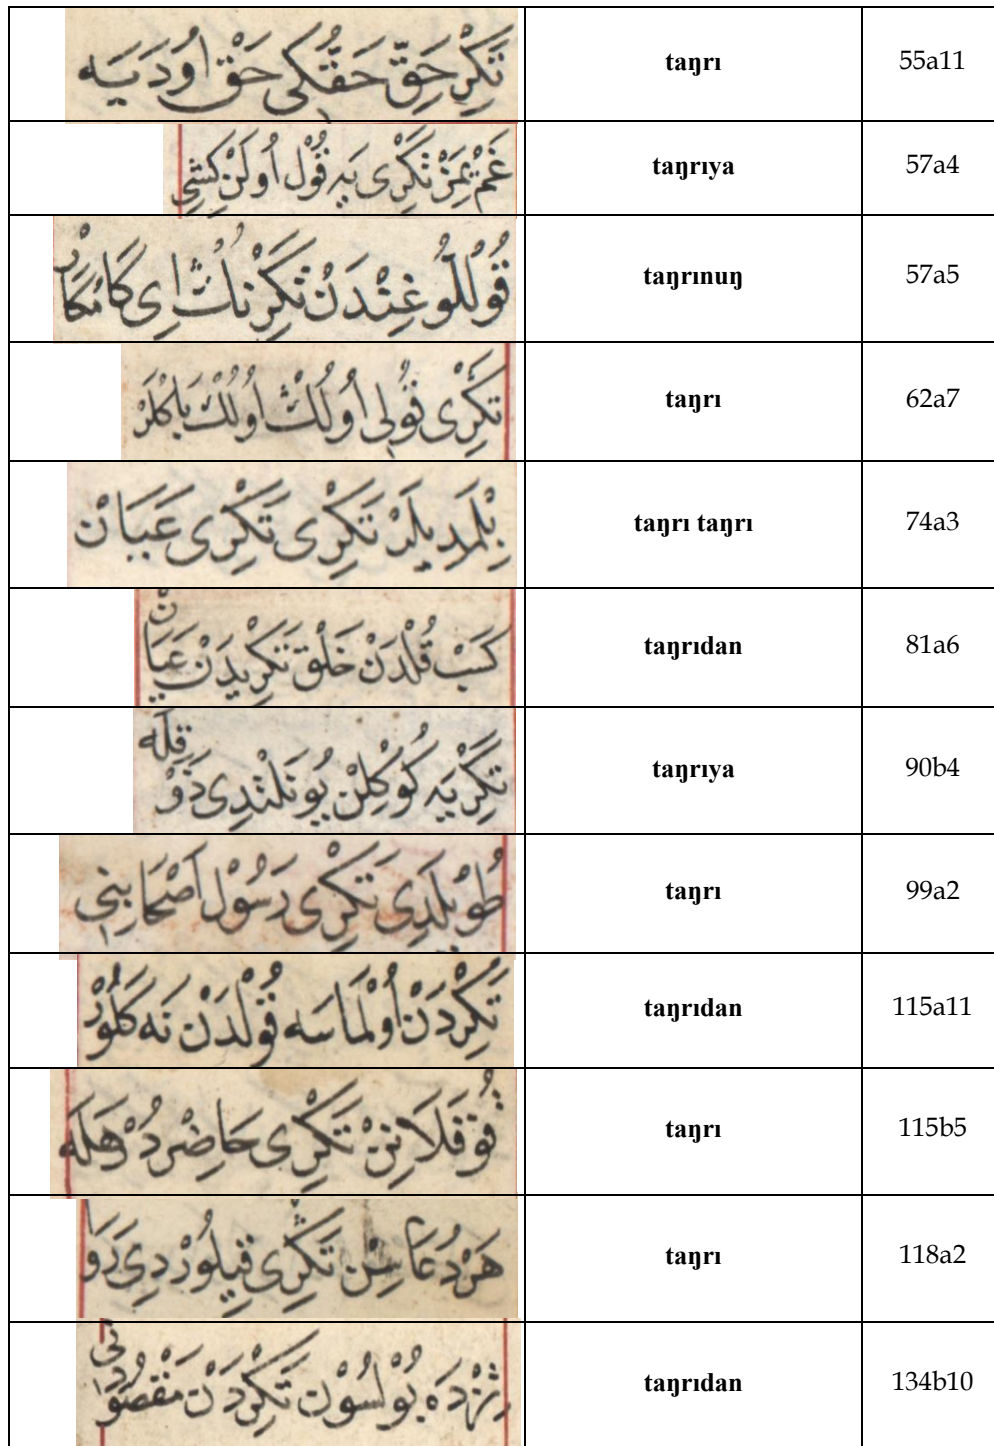 تَكْرِ حَقِّ حَقُّكِى حَقْ اُودَيَه taŋrı 55a11
غَمْ يِمَزْ تَكْرِى يَه قُولْ اُولَنْ كِشِى taŋrıya 57a4
قُوللُوغِنْدَنْ تَكْرِنُكْ اِى كَامكَارْ taŋrınuŋ 57a5
تَكْرِى قُولِى اُولُكْ اُولُكْ بَاكُلَرْ taŋrı 62a7
بِلْمَدِيلَرْ تَكْرِى تَكْرِى عَيَانْ taŋrı taŋrı 74a3
كَسْبْ قُلْدَنْ خَلْق تَكْرِيدَنْ عَيَانْ taŋrıdan 81a6
تَكْرِيَه كُوكِلِنْ يُونَلْتَدِى ذَوْقِلَه taŋrıya 90b4
طُويْلَدِى تَكْرِى رَسُولْ اَصْحَابِنِى taŋrı 99a2
تَكْرِدَنْ اُولْمَاسَه قُولْدَنْ نَه كَلُورْ taŋrıdan 115a11
تَكْرِى حَاضِرْدُرْ هَلَه taŋrı 115b5
هَرْ دُعَاسِنْ تَكْرِى قِيلُورْدِى رَوَا taŋrı 118a2
بُولْسُونْ تَكْرِدَنْ مَقْصُودِنِى taŋrıdan 134b10